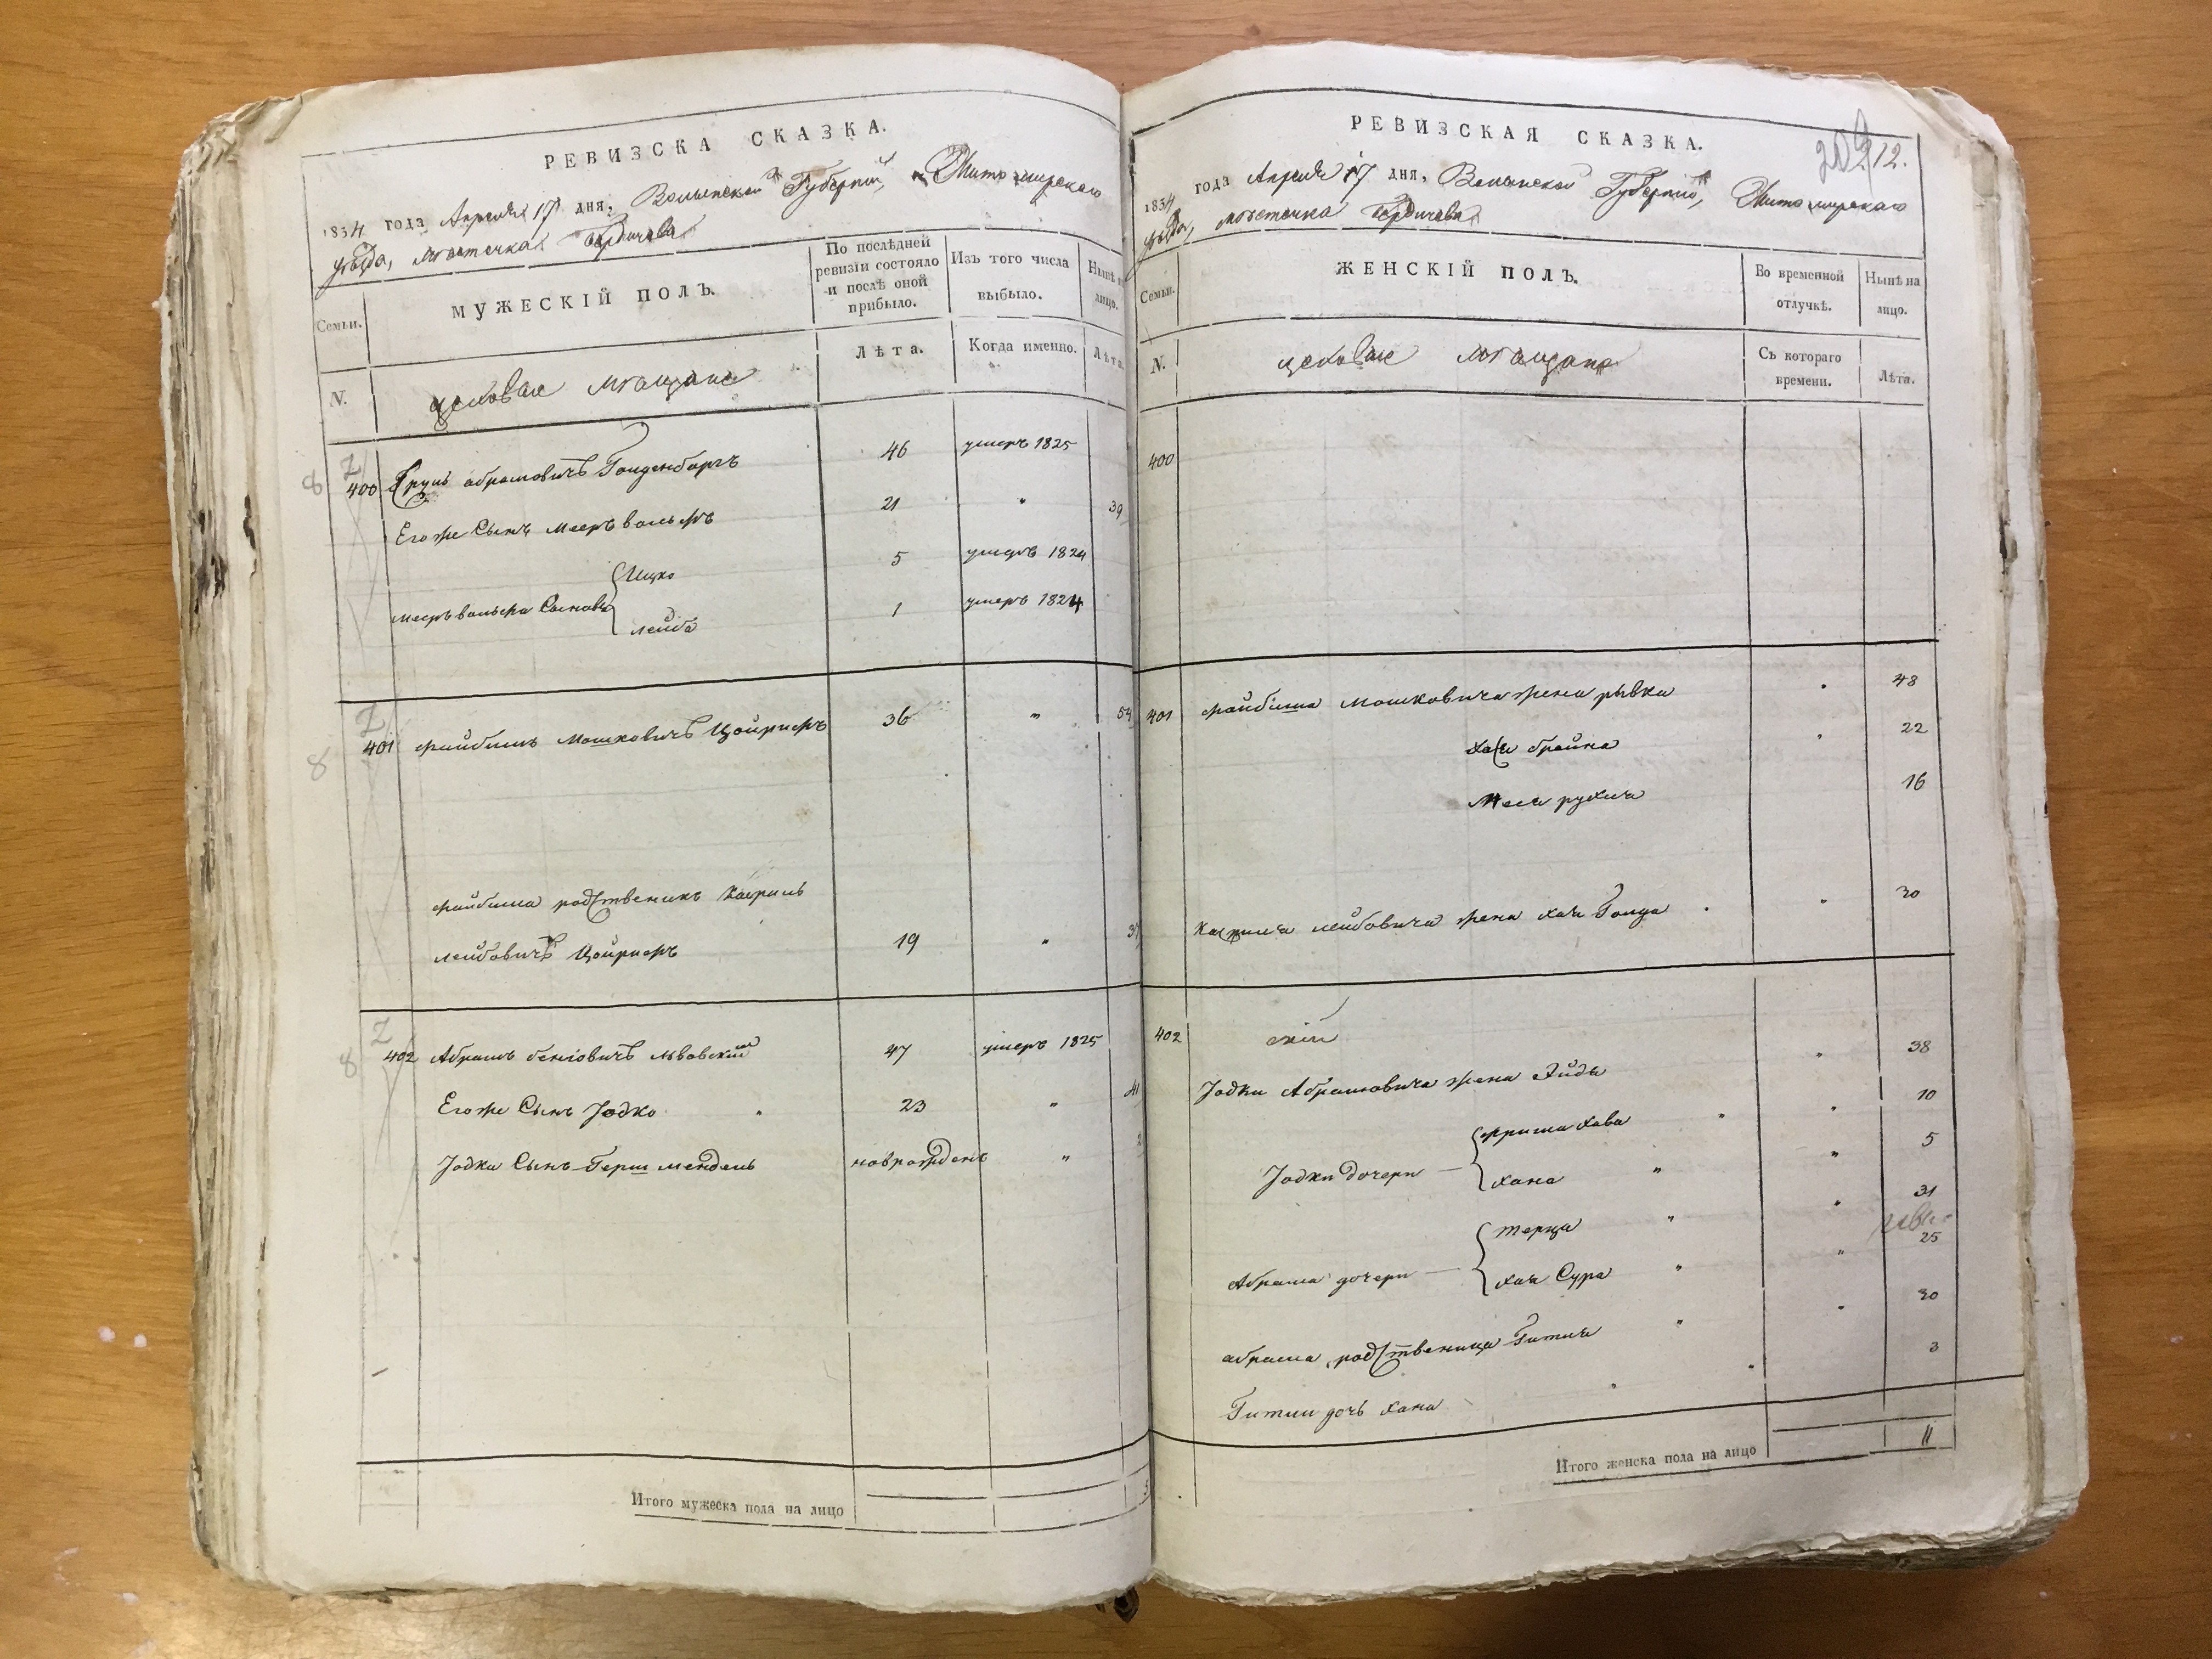 РЕВИЗСКА СКАЗКА.
1834 года Апреля 17 дня, Волынской Губерніи, Житомирскаго
уезда, местечка Бердичева
Семьи.
МУЖЕСКІЙ ПОЛЪ.
По послѣдней ревизіи состояло и послѣ оной прибыло.
Изъ того числа выбыло.
Нынѣ
лицо.
N.
Лѣта.
Когда именно.
Лѣта
мѣщане
400 абрамовичъ Голденбергъ 46 умеръ 1825
Его же Сынъ Мееръ вольфъ 21 " 39
Ицко 5 умеръ 1824
Мееръ вольфа Сыновья
лейба 1 умеръ 1824
401 Файбишъ Мошковичъ 36 " 54
Файбиша родственикъ Касриль
лейбовичъ 19 " 37
402 Абрамъ беніовичъ львовскій 47 умеръ 1825
Его же Сынъ Іодко " 23 " 41
Іодки Сынъ Герш мендель новрожденъ " 2
Итого мужеска пола на лицо 5
РЕВИЗСКАЯ СКАЗКА.
212.
1834 года Апреля 17 дня, Волынской Губерніи, Житомирскаго
уезда, местечка Бердичева
Семьи.
ЖЕНСКІЙ ПОЛЪ.
Во временной отлучкѣ.
Нынѣ на лицо.
N.
Съ котораго времени.
Лѣта.
мѣщане
400
401 Файбиша Мошковича жена рывка " 48
Хая брайна " 22
Меля рухля 16
Касриля лейбовича жена хая Голда " 30
402
Іодки Абрамовича жена Эйдя " 38
Фрима хава " " 10
Іодки дочери
хана " " 5
терца " " 31
Абрама дочери
хая Сура " " 25
абрама родственица Гитля " " 30
Гитли дочь хана " " 3
Итого женска пола на лицо 11